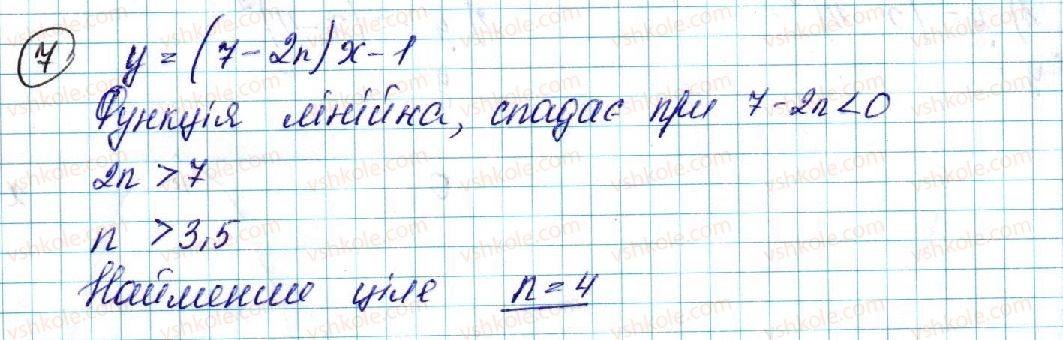 7 y = (7 - 2n)x - 1
Функція лінійна, спадає при 7 - 2n < 0
2n > 7
n > 3,5
Найменше ціле n = 4